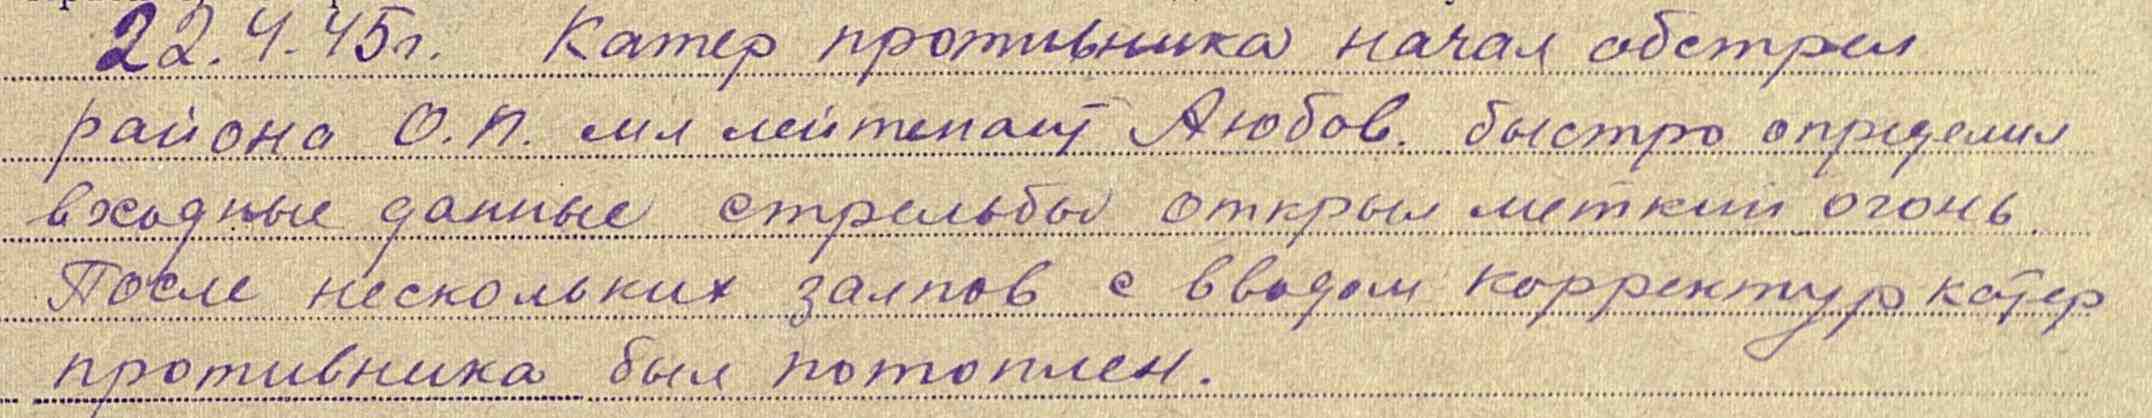 22.4.45г. Катер противника начал обстрел
района О.П. мл лейтенант Аюбов. быстро определил
входные данные стрельбы открыл меткий огонь.
После нескольких залпов с вводом корректур катер
противника был потоплен.